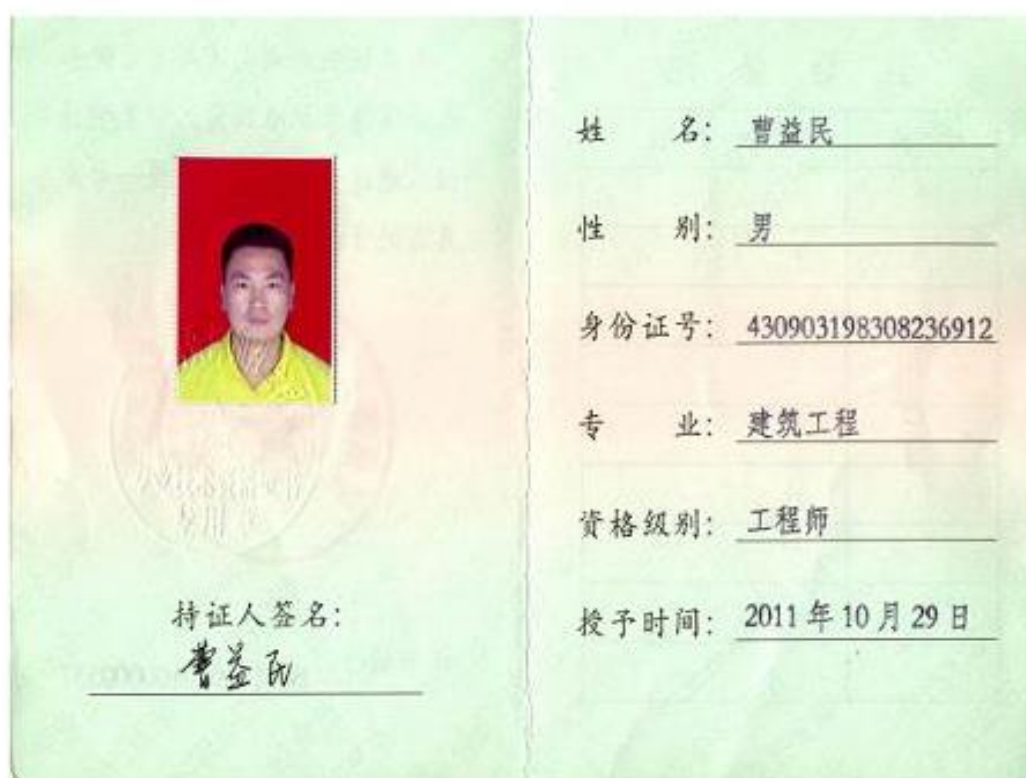 持证人签名:
曹益民
姓 名: 曹益民
性 别: 男
身份证号: 430903198308236912
专 业: 建筑工程
资格级别: 工程师
授予时间: 2011年10月29日